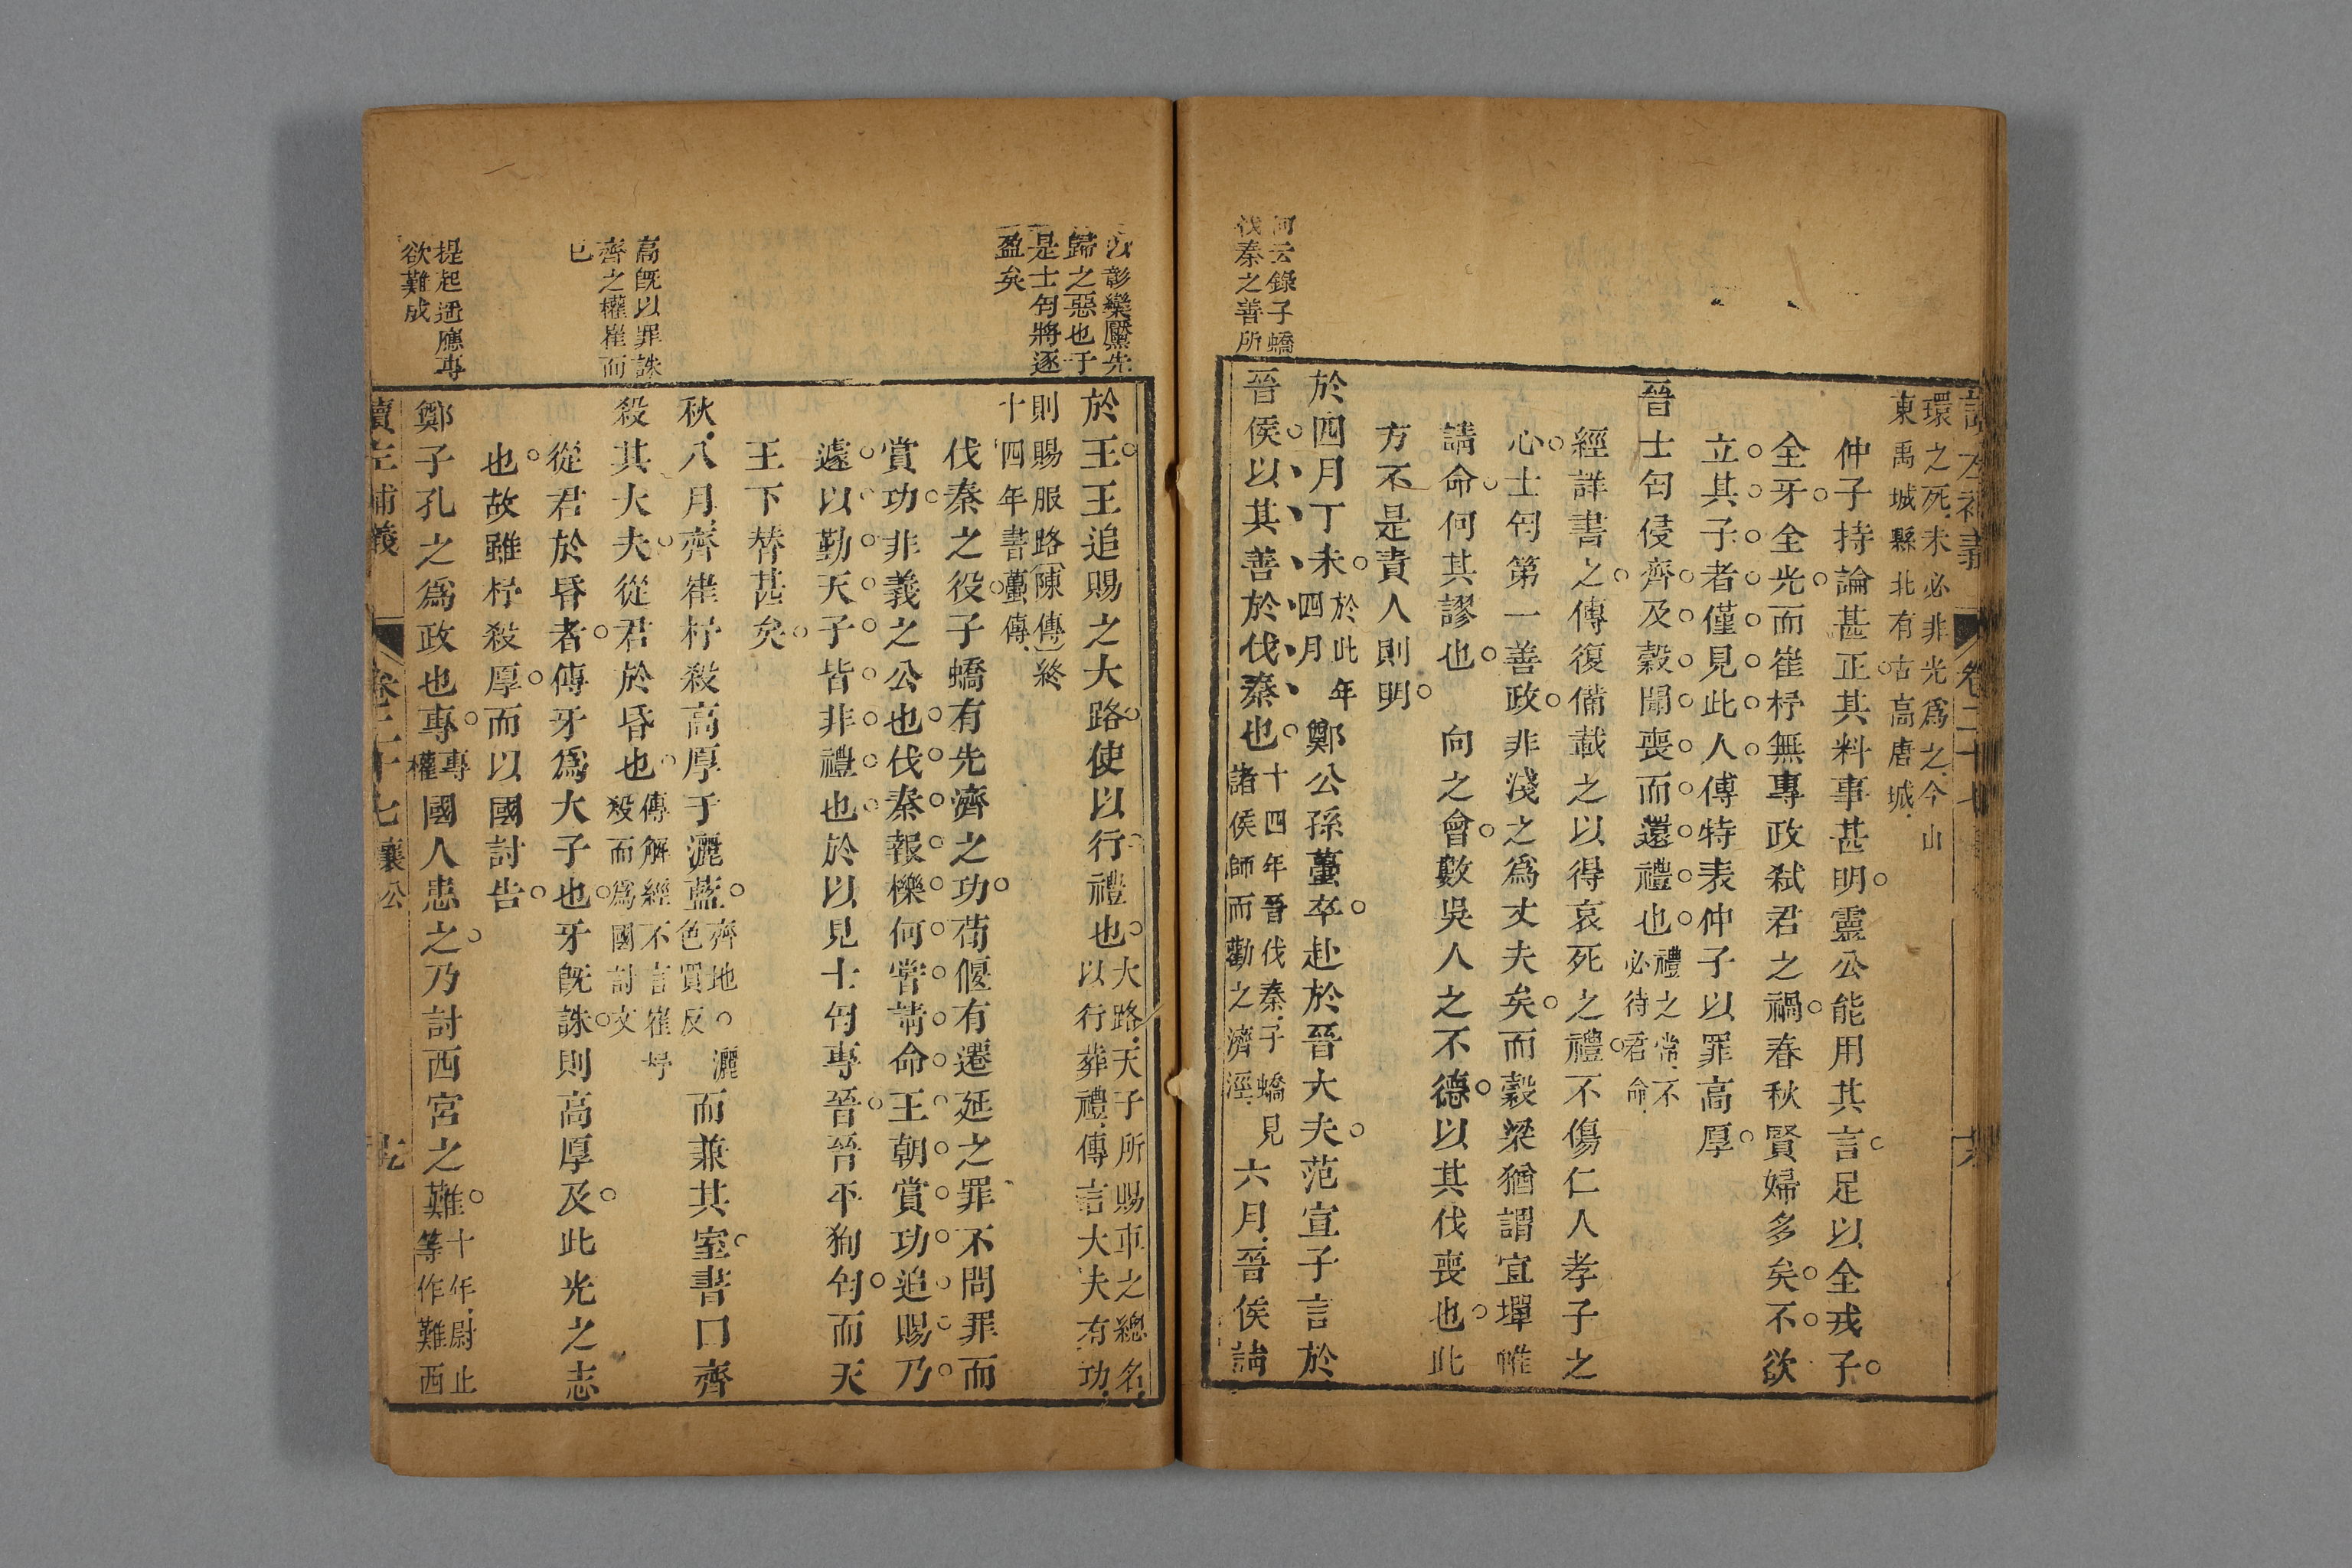 讀左補義 卷二十七
環之死未必非光爲之今山
東禹城縣北有古高唐城
仲子持論甚正其料事甚明靈公能用其言足以全戎子
全牙全光而崔杼無專政弑君之禍春秋賢婦多矣不欲
立其子者僅見此人傳特表仲子以罪高厚
晉士匄侵齊及穀聞喪而還禮也禮之常不
必待君命
經詳書之傳復備載之以得哀死之禮不傷仁人孝子之
心士匄第一善政非淺之爲丈夫矣而穀梁猶謂宜墠帷
請命何其謬也 向之會數吳人之不德以其伐喪也此
方不是責人則明
於四月丁未於此年
四月鄭公孫蠆卒赴於晉大夫范宣子言於
何云錄子蟜
伐秦之善所
晉侯以其善於伐秦也十四年晉伐秦子蟜見
諸侯師而勸之濟涇六月晉侯請
以彰欒黶先
歸之惡也于
是士匄將逐
盈矣
於王王追賜之大路使以行禮也大路天子所賜車之總名
以行葬禮傳言大夫有功
則賜服路(陳傳)終
十四年書蠆傳
伐秦之役子蟜有先濟之功荀偃有遷延之罪不問罪而
賞功非義之公也伐秦報櫟何嘗請命王朝賞功追賜乃
遽以勤天子皆非禮也於以見士匄專晉晉平狥匄而天
王下替甚矣
高旣以罪誅
齊之權崔而
已
秋八月齊崔杼殺高厚于灑藍齊地灑
色買反而兼其室書曰齊
殺其大夫從君於昏也傳解經不言崔杼
殺而爲國討文
從君於昏者傳牙爲大子也牙旣誅則高厚及此光之志
也故雖杼殺厚而以國討告
提起遥應專
欲難成
鄭子孔之爲政也專專
權國人患之乃討西宮之難十年尉止
等作難西
讀左補義 卷二十七襄公